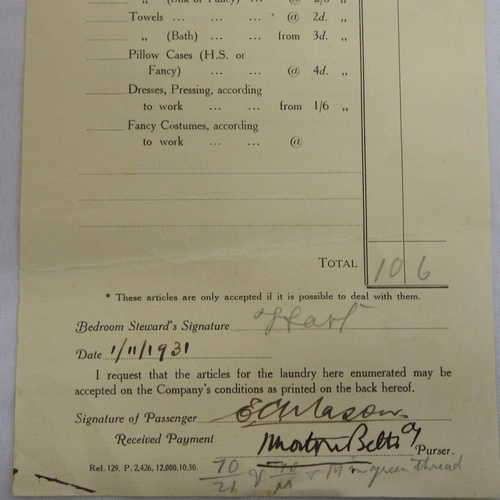 „ (Silk or Fancy) ... @ 2/6 „
Towels ... ... ... @ 2d. „
„ (Bath) ... from 3d. „
Pillow Cases (H.S. or
Fancy) ... ... @ 4d. „
Dresses, Pressing, according
to work ... ... from 1/6 „
Fancy Costumes, according
to work ... ... @
TOTAL 10 6
* These articles are only accepted if it is possible to deal with them.
Bedroom Steward's Signature
Date 1/11/1931
I request that the articles for the laundry here enumerated may be
accepted on the Company's conditions as printed on the back hereof.
Signature of Passenger E C Mason
Received Payment Morton Betts Purser.
Rel. 129. P. 2,426, 12,000.10.30. 70 green thread
21